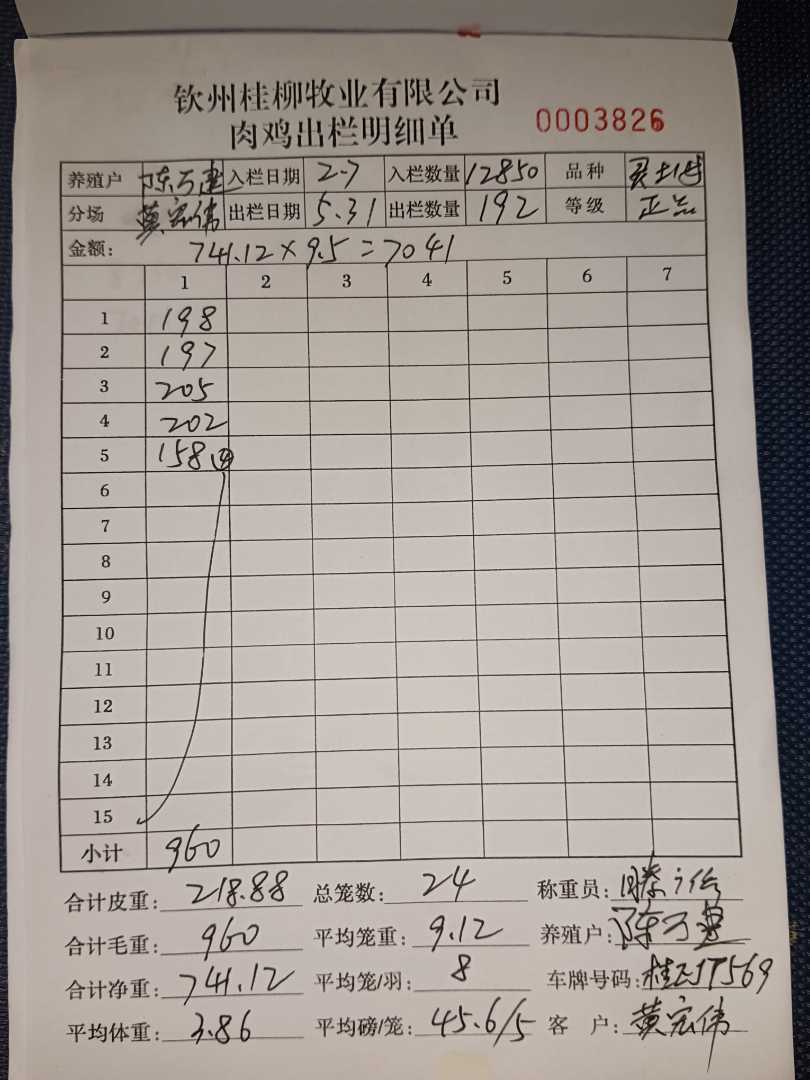 钦州桂柳牧业有限公司
肉鸡出栏明细单 0003826
养殖户 陈万建 入栏日期 2-7 入栏数量 12850 品种
分场 黄宏伟 出栏日期 5.31 出栏数量 192 等级 正品
金额: 741.12×9.5=7041
1 2 3 4 5 6 7
1 198
2 197
3 205
4 202
5 158④
6
7
8
9
10
11
12
13
14
15
小计 960
合计皮重: 218.88 总笼数: 24 称重员:
合计毛重: 960 平均笼重: 9.12 养殖户: 陈万建
合计净重: 741.12 平均笼/羽: 8 车牌号码:
平均体重: 3.86 平均磅/笼: 45.6/5 客 户: 黄宏伟